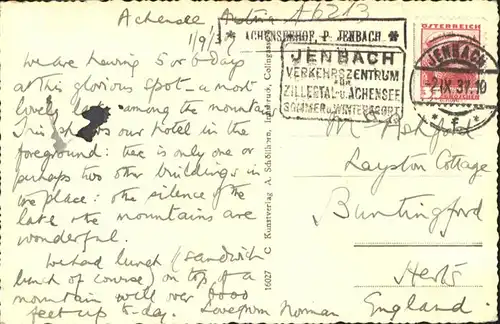 Achensee Austria A6213
1/9/37
We are having 5 or 6 days
at this glorious spot - a most
lovely lake among the mountains
This shows our hotel in the
foreground: there is only one or
perhaps two other buildings in
the place: the silence of the
lake & the mountains are
wonderful.
We had lunch (sandwich
lunch of course) on top of a
mountain well over 6000
feet up to-day. Love from Norman
16027 C Kunstverlag A. Stockhammer, Innsbruck,
* ACHENSEEHOF, P. JENBACH *
JENBACH
VERKEHRSZENTRUM
FÜR
ZILLERTAL-U.ACHENSEE
SOMMER U.WINTERSPORT
ÖSTERREICH
GROSCHEN
JENBACH
-2.IX.37.10
Ashford
Layston Cottage
Buntingford
Herts
England.